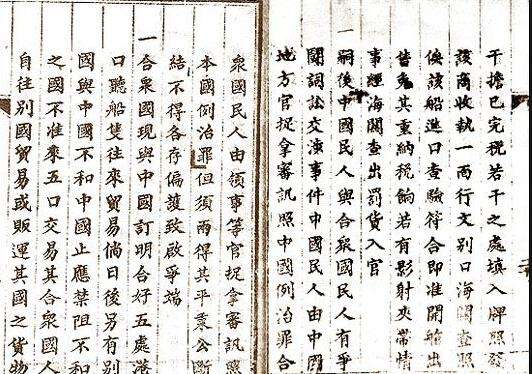 干擔已完稅若干之處填入牌照發
該商收執一面行文別口海關查照
俟該船進口查驗符合即准開艙出
售免其重納稅餉若有影射夾帶情
事經海關查出罰貨入官
一嗣後中國民人與合衆國民人有爭
鬬詞訟交涉事件中國民人由中國
地方官捉拿審訊照中國例治罪合
衆國民人由領事等官捉拿審訊照
本國例治罪但須兩得其平秉公斷
結不得各存偏護致啟爭端
一合衆國現與中國訂明合好五處港
口聽船隻往來貿易倘日後另有別
國與中國不和中國止應禁阻不和
之國不准來五口交易其合衆國人
自往別國貿易或販運其國之貨物